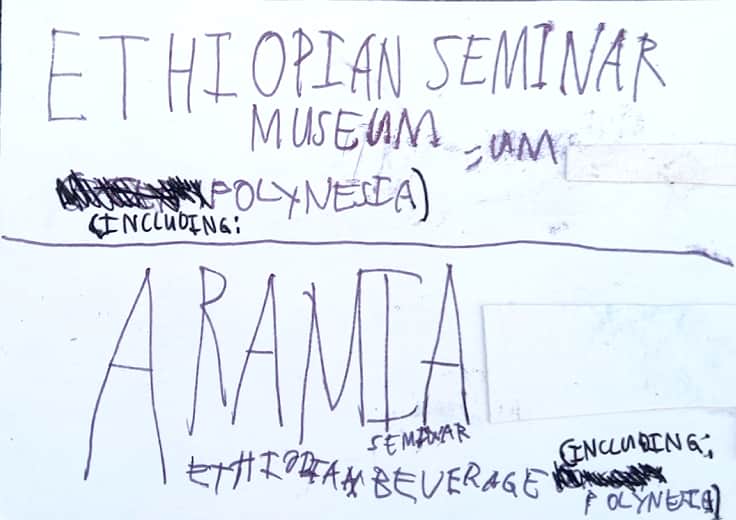 ETHIOPIAN SEMINAR
MUSEUM =UM
POLYNESIA)
(INCLUDING:
ARAMIA
SEMINAR
ETHIOPIAN BEVERAGE
(INCLUDING:
POLYNESIA)